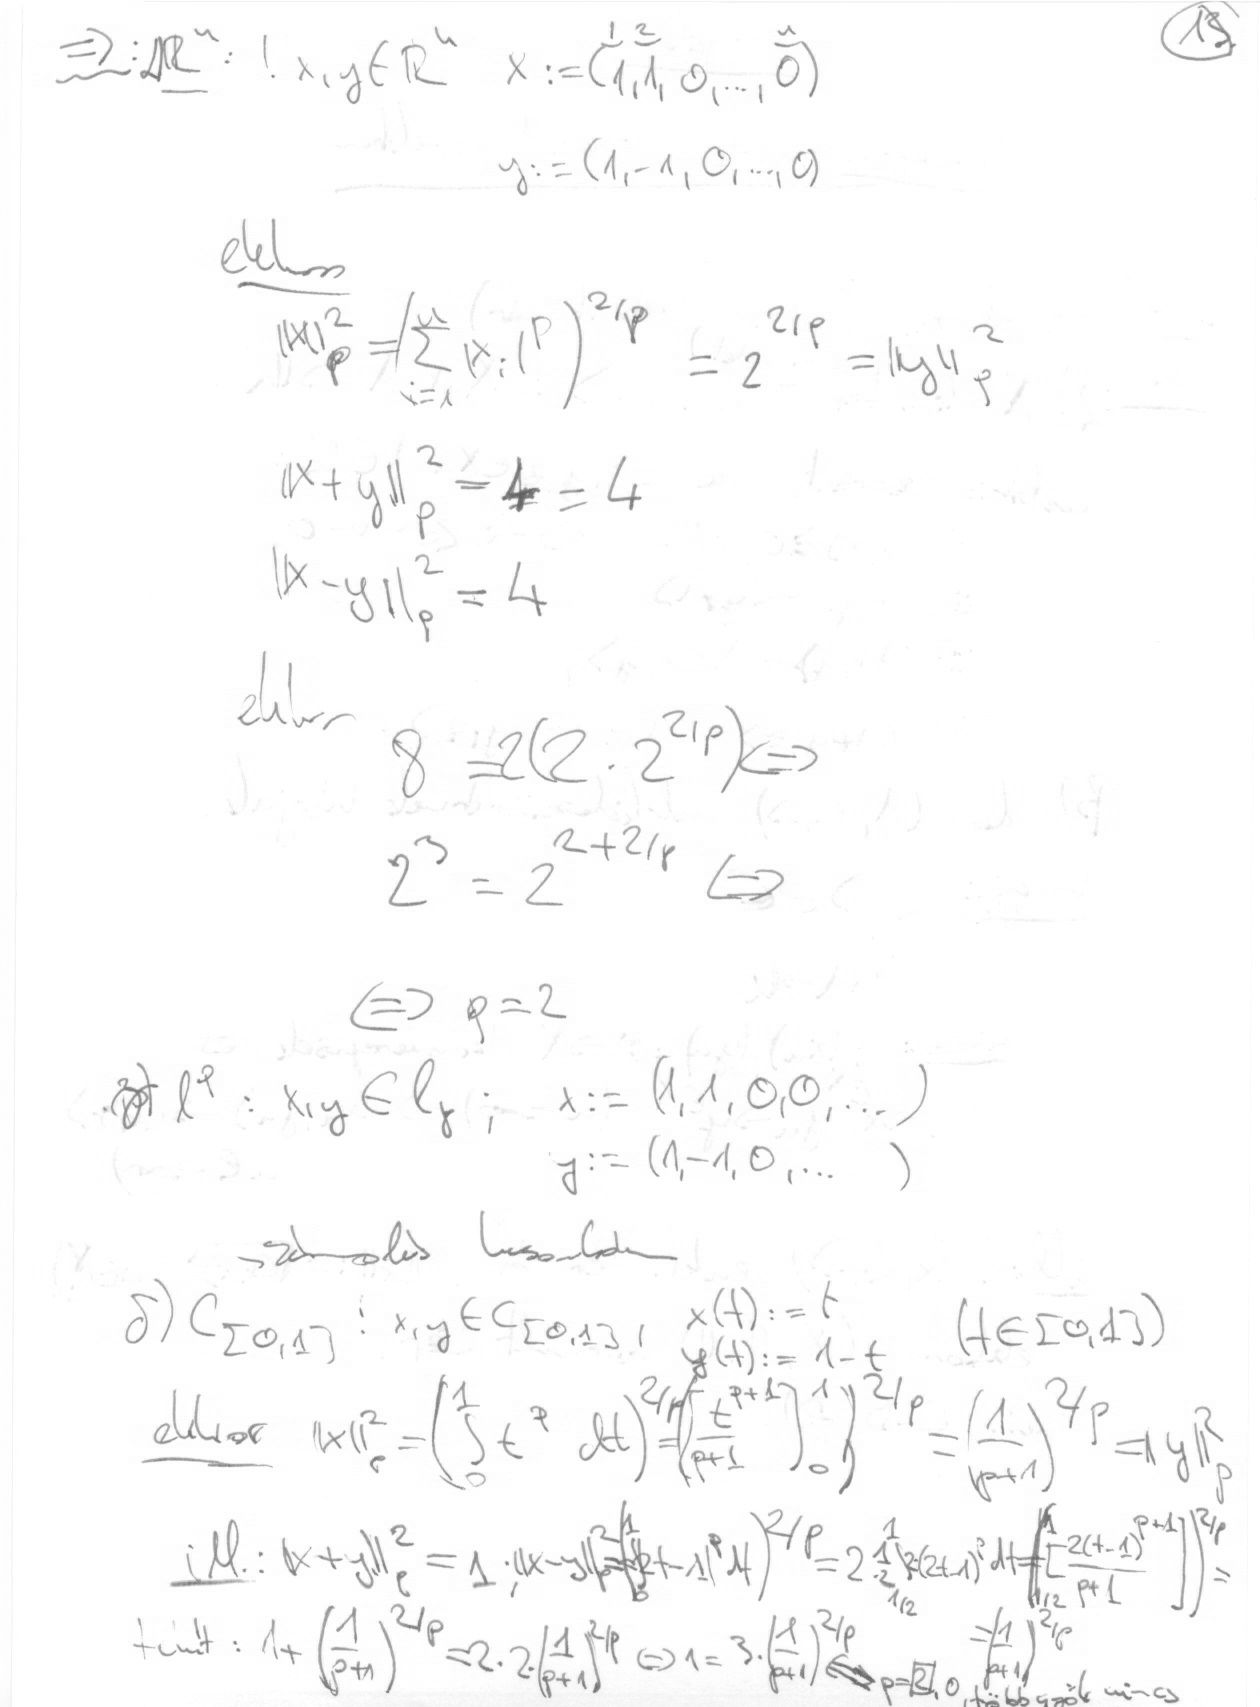 13
⇒: ℝⁿ: ! x,y∈ℝⁿ x:=(1,1,0,...,0)
y:=(1,-1,0,...,0)
ekkor
||x||_p^2 = (∑_{i=1}^{n} |x_i|^p)^{2/p} = 2^{2/p} = ||y||_p^2
||x+y||_p^2 = 4 = 4
||x-y||_p^2 = 4
ekkor
8 = 2(2·2^{2/p}) ⇔
2^3 = 2^{2+2/p} ⇔
⇔ p=2
l^p : x,y ∈ l_p ; x:= (1,1,0,0,....)
y:= (1,-1,0,... )
számolás hasonlóan
δ) C_{[0,1]} : x,y∈C_{[0,1]}, x(t):= t (t∈[0,1])
y(t):= 1-t
ekkor ||x||_p^2 = (∫_0^1 t^p dt)^{2/p} = ([t^{p+1}/p+1]_0^1)^{2/p} = (1/p+1)^{2/p} = ||y||_p^2
ill.: ||x+y||_p^2 = 1 ; ||x-y||_p^2 = (∫_0^1 |2t-1|^p dt)^{2/p} = 2·1/2 ∫_{1/2}^1 2·(2t-1)^p dt = ([2(t-1)^{p+1}/p+1]_{1/2}^1)^{2/p} =
= (1/p+1)^{2/p}
1+(1/p+1)^{2/p} = 2·2·(1/p+1)^{2/p} ⇔ 1 = 3·(1/p+1)^{2/p} ⇔ p=2, 0, több gyök nincs